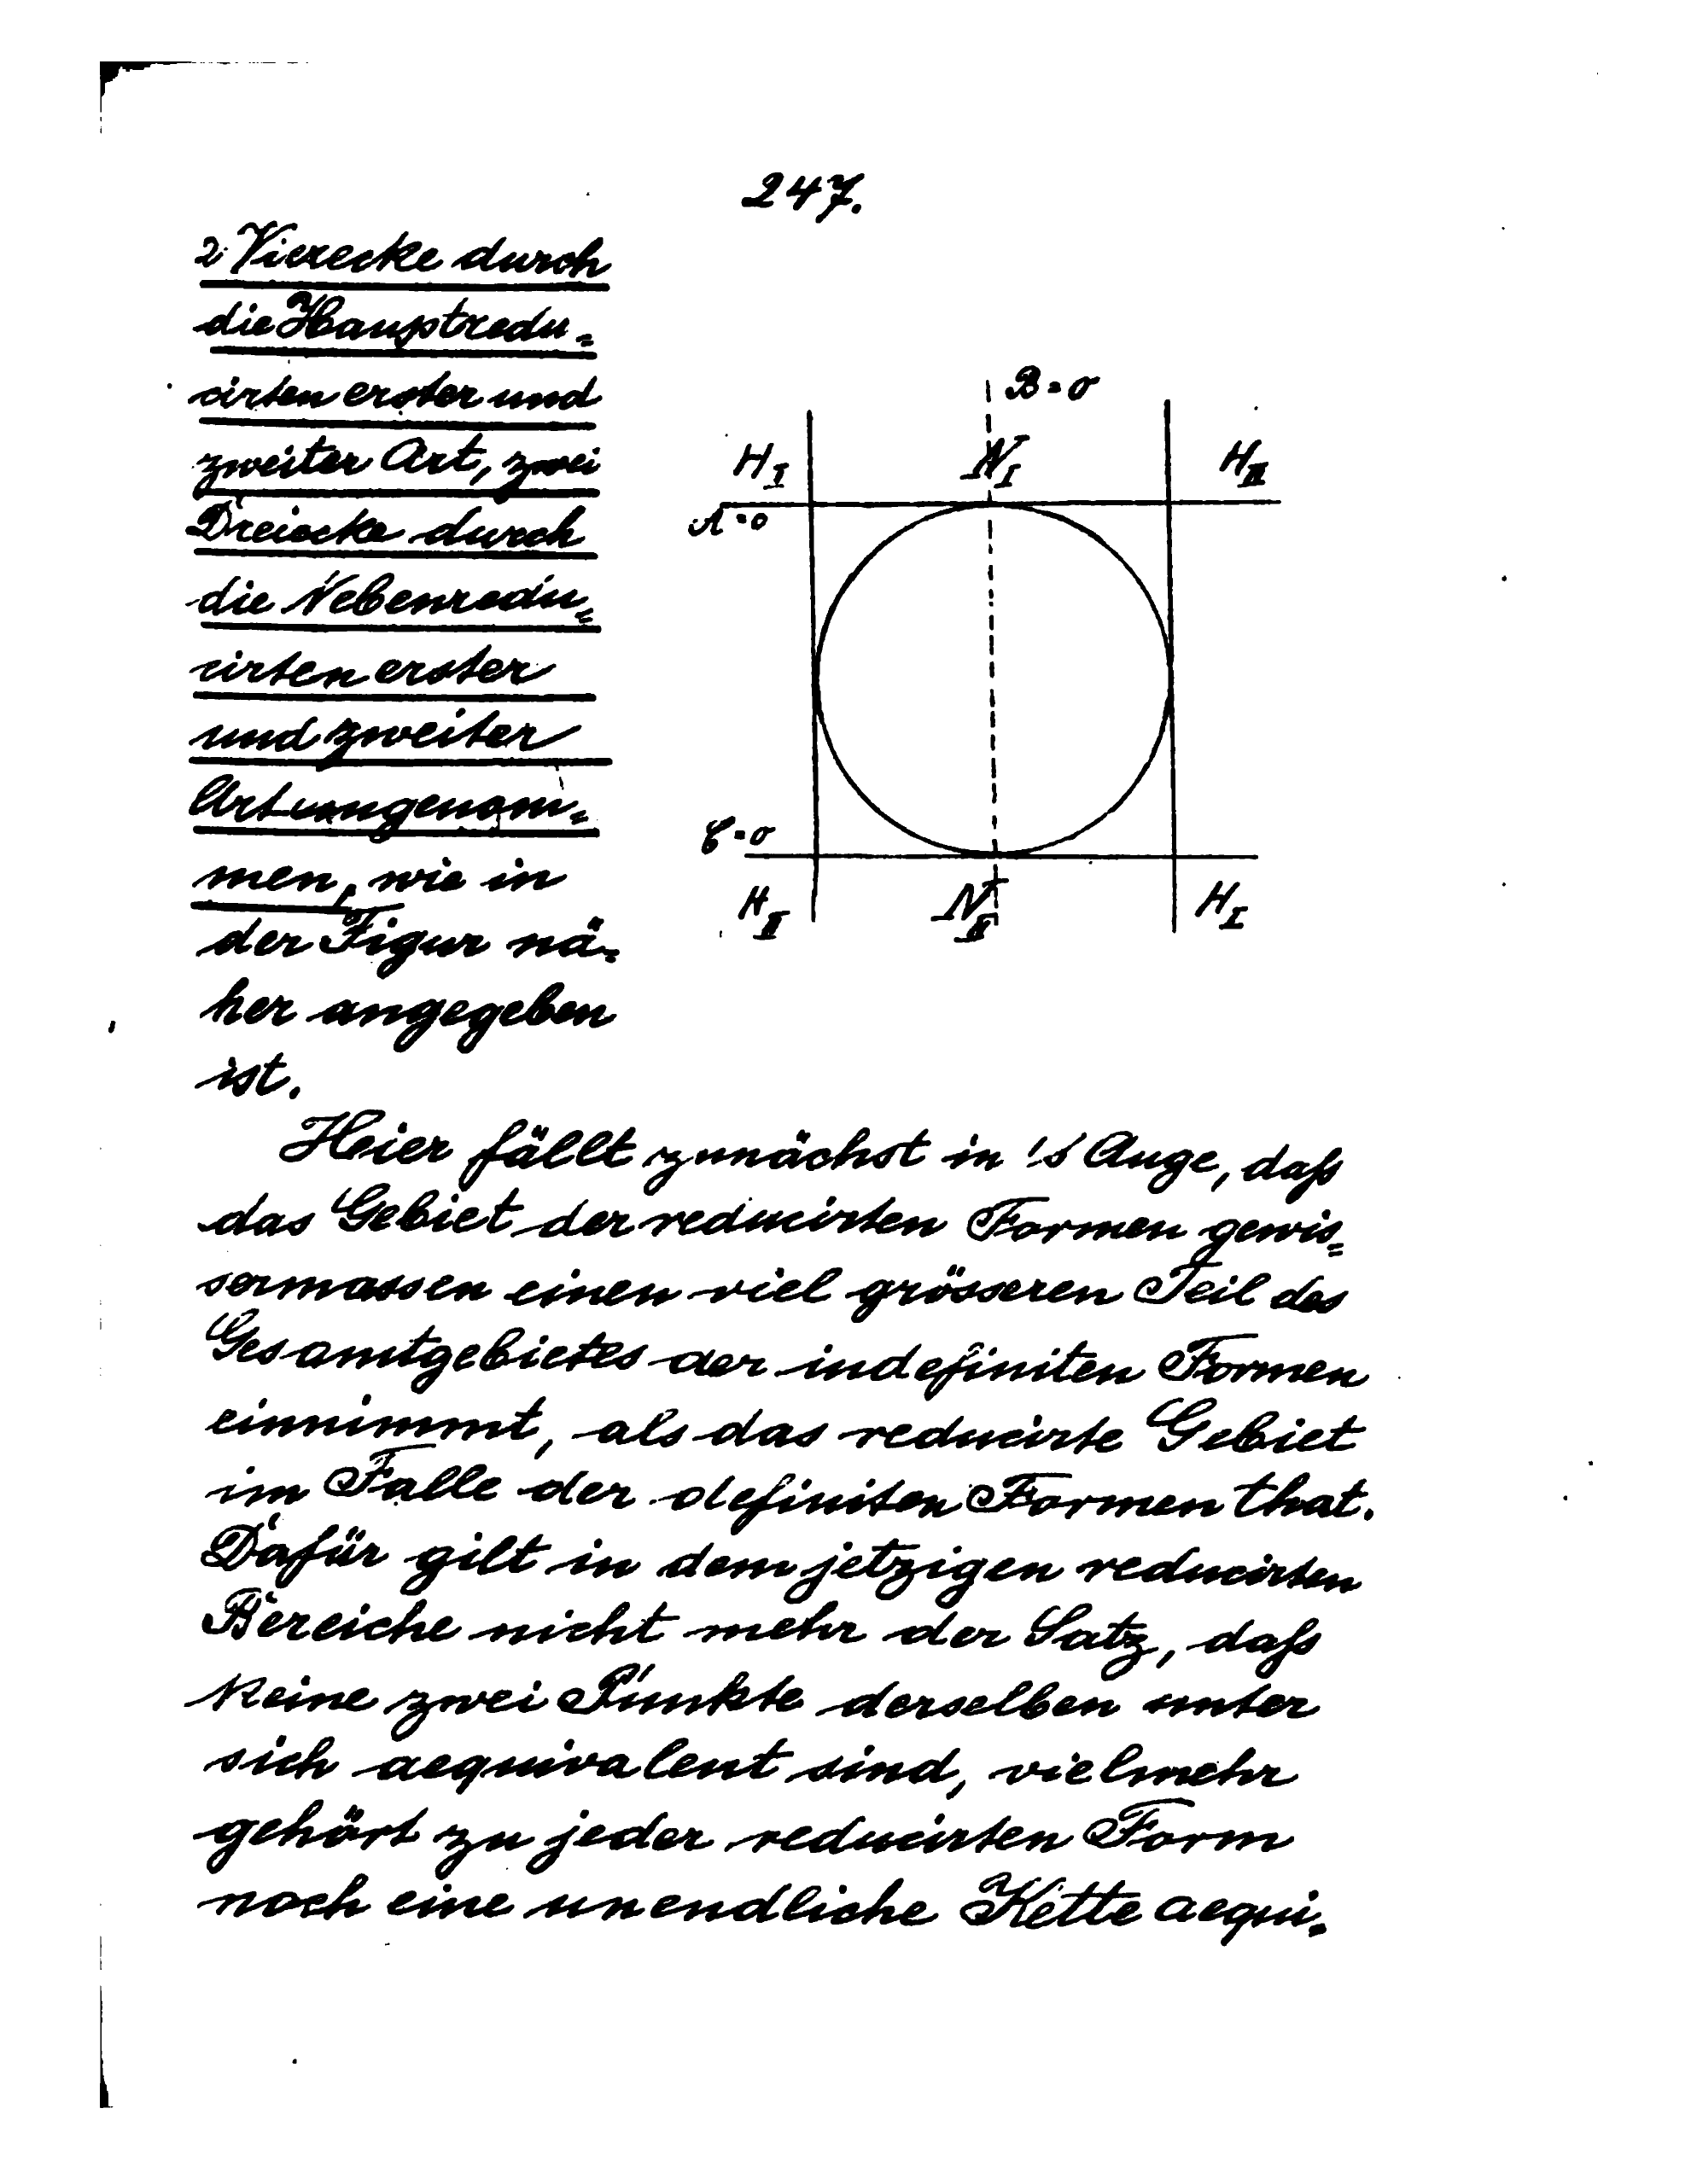 247.
2 Vierecke durch
die Hauptredu=
cirten erster und
zweiter Art, zwei
Dreiecke durch
die Nebenredu=
cirten erster
und zweiter
Art eingenom=
men, wie in
der Figur nä=
her angegeben
ist.
B=0
H_I
N_I
H_II
A=0
C=0
H_II
N_II
H_I
Hier fällt zunächst in's Auge, daß
das Gebiet der reducirten Formen gewis=
sermassen einen viel grösseren Teil des
Gesamtgebietes der indefiniten Formen
einnimmt, als das reducirte Gebiet
im Falle der definiten Formen that.
Dafür gilt in dem jetzigen reducirten
Bereiche nicht mehr der Satz, daß
keine zwei Punkte derselben unter
sich aequivalent sind, vielmehr
gehört zu jeder reducirten Form
noch eine unendliche Kette aequi=